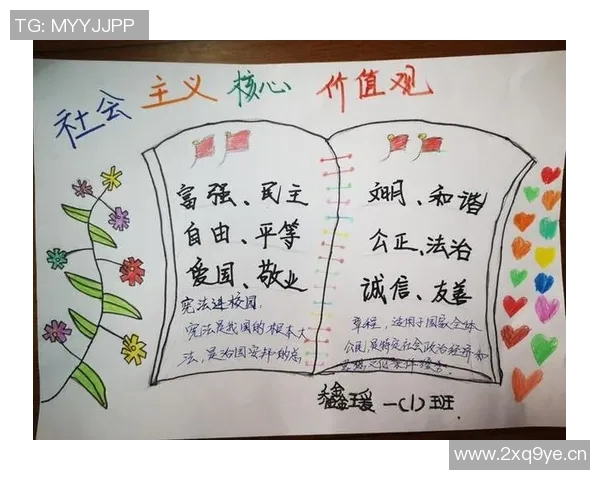 TG: MYYJJPP
社会 主义 核心 价值观
富强、民主
自由、平等
爱国、敬业
宪法进校园.
宪法是我国的根本大
法,是治国安邦的总
文明、和谐
公正、法治
诚信、友善
章程,适用于国家全体
公民,是特定社会政治经济和
鑫瑗 一(1)班
www.2xq9ye.cn